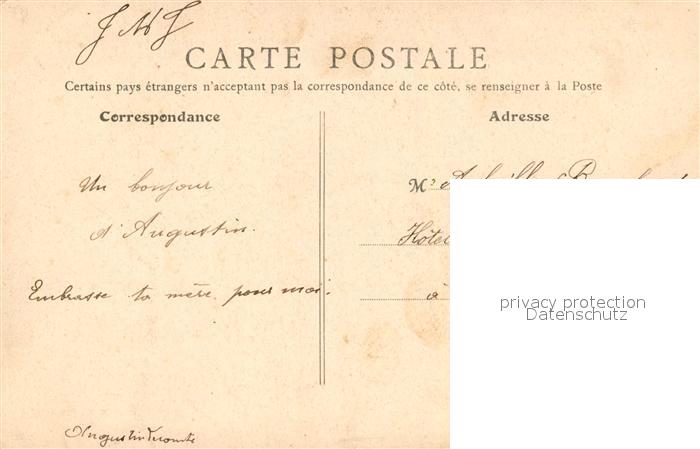 J M J
CARTE POSTALE
Certains pays étrangers n'acceptent pas la correspondance de ce côté, se renseigner à la Poste
Correspondance
Adresse
Un bonjour
d'Augustin.
Embrasse ta mère pour moi.
M
Hôtel
à
privacy protection
Datenschutz
Augustin